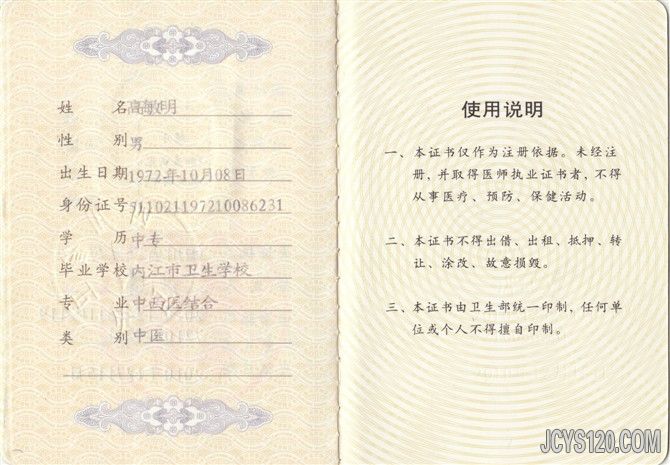 姓名高敏明
性别男
出生日期1972年10月08日
身份证号511021197210086231
学历中专
毕业学校内江市卫生学校
专业中西医结合
类别中医
使用说明
一、本证书仅作为注册依据。未经注
册，并取得医师执业证书者，不得
从事医疗、预防、保健活动。
二、本证书不得出借、出租、抵押、转
让、涂改、故意损毁。
三、本证书由卫生部统一印制，任何单
位或个人不得擅自印制。
JCYS120.COM